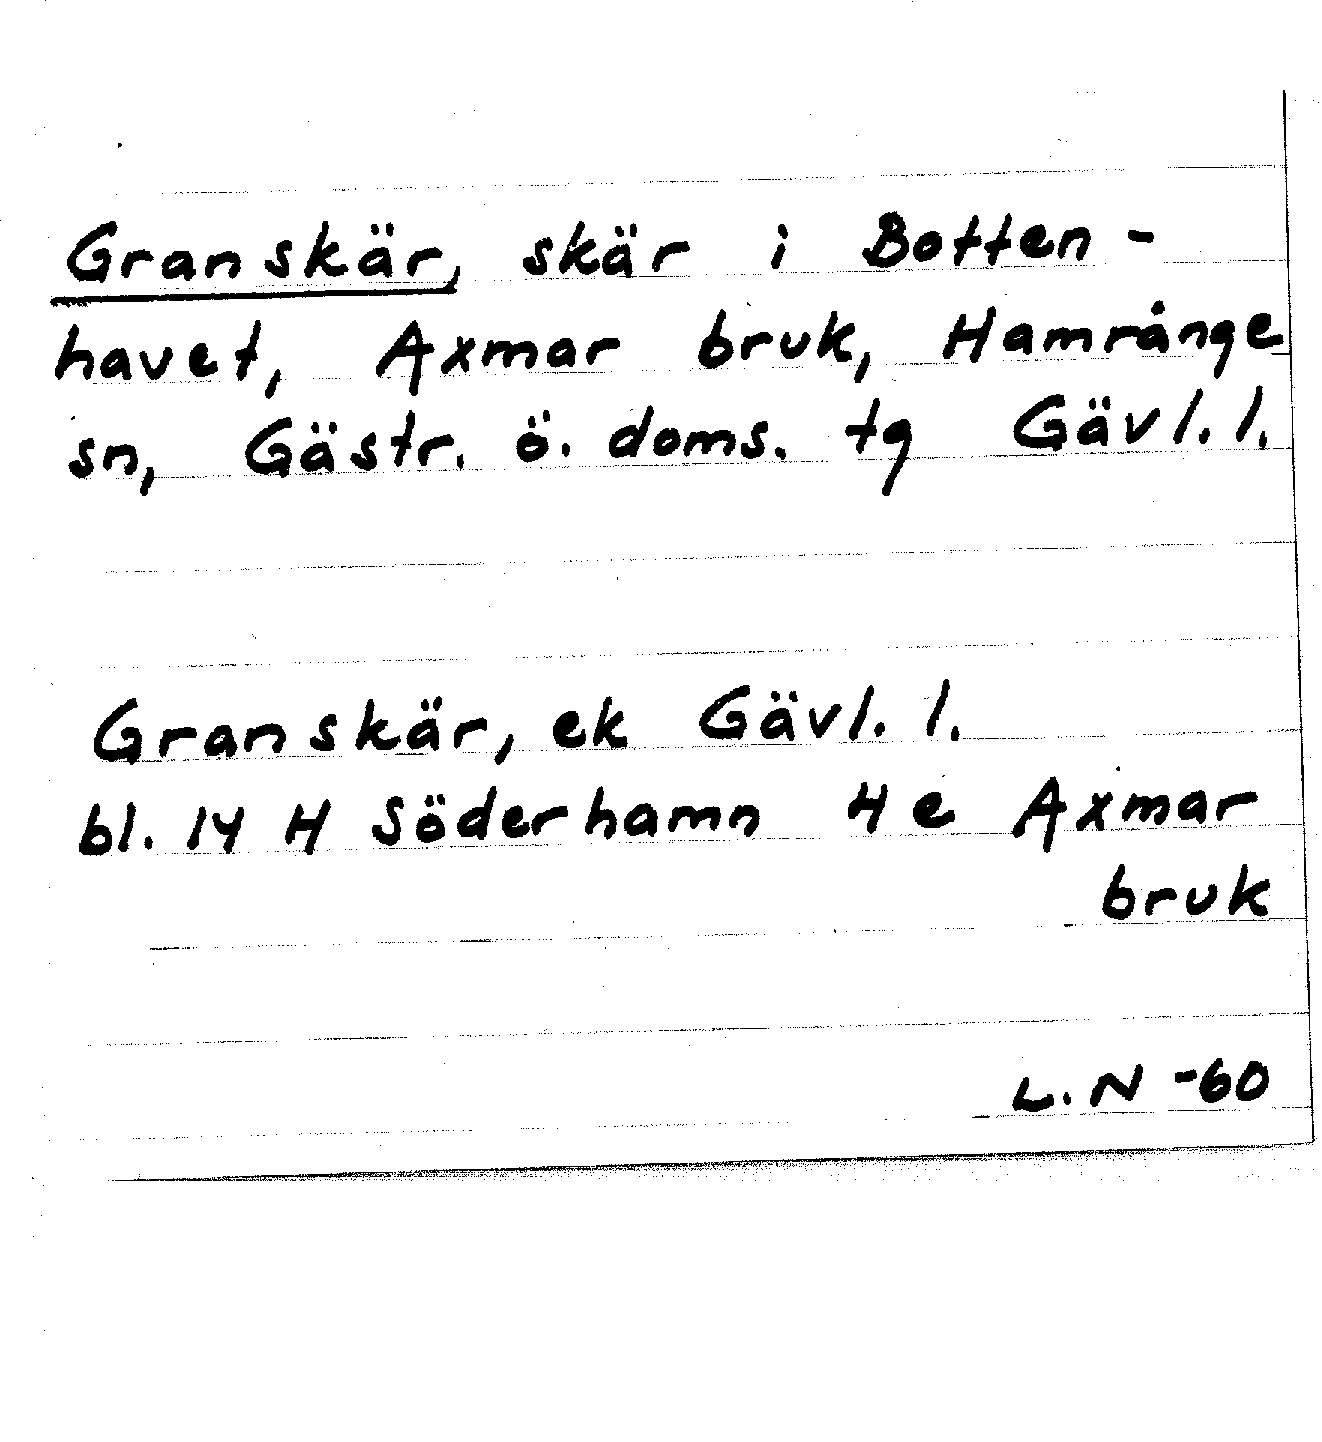 Granskär, skär i Botten-
havet, Axmar bruk, Hamrånge
sn, Gästr. ö. doms. tg Gävl. l.
Granskär, ek Gävl. l.
bl. 14 H Söderhamn 4 e Axmar
bruk
L. N -60